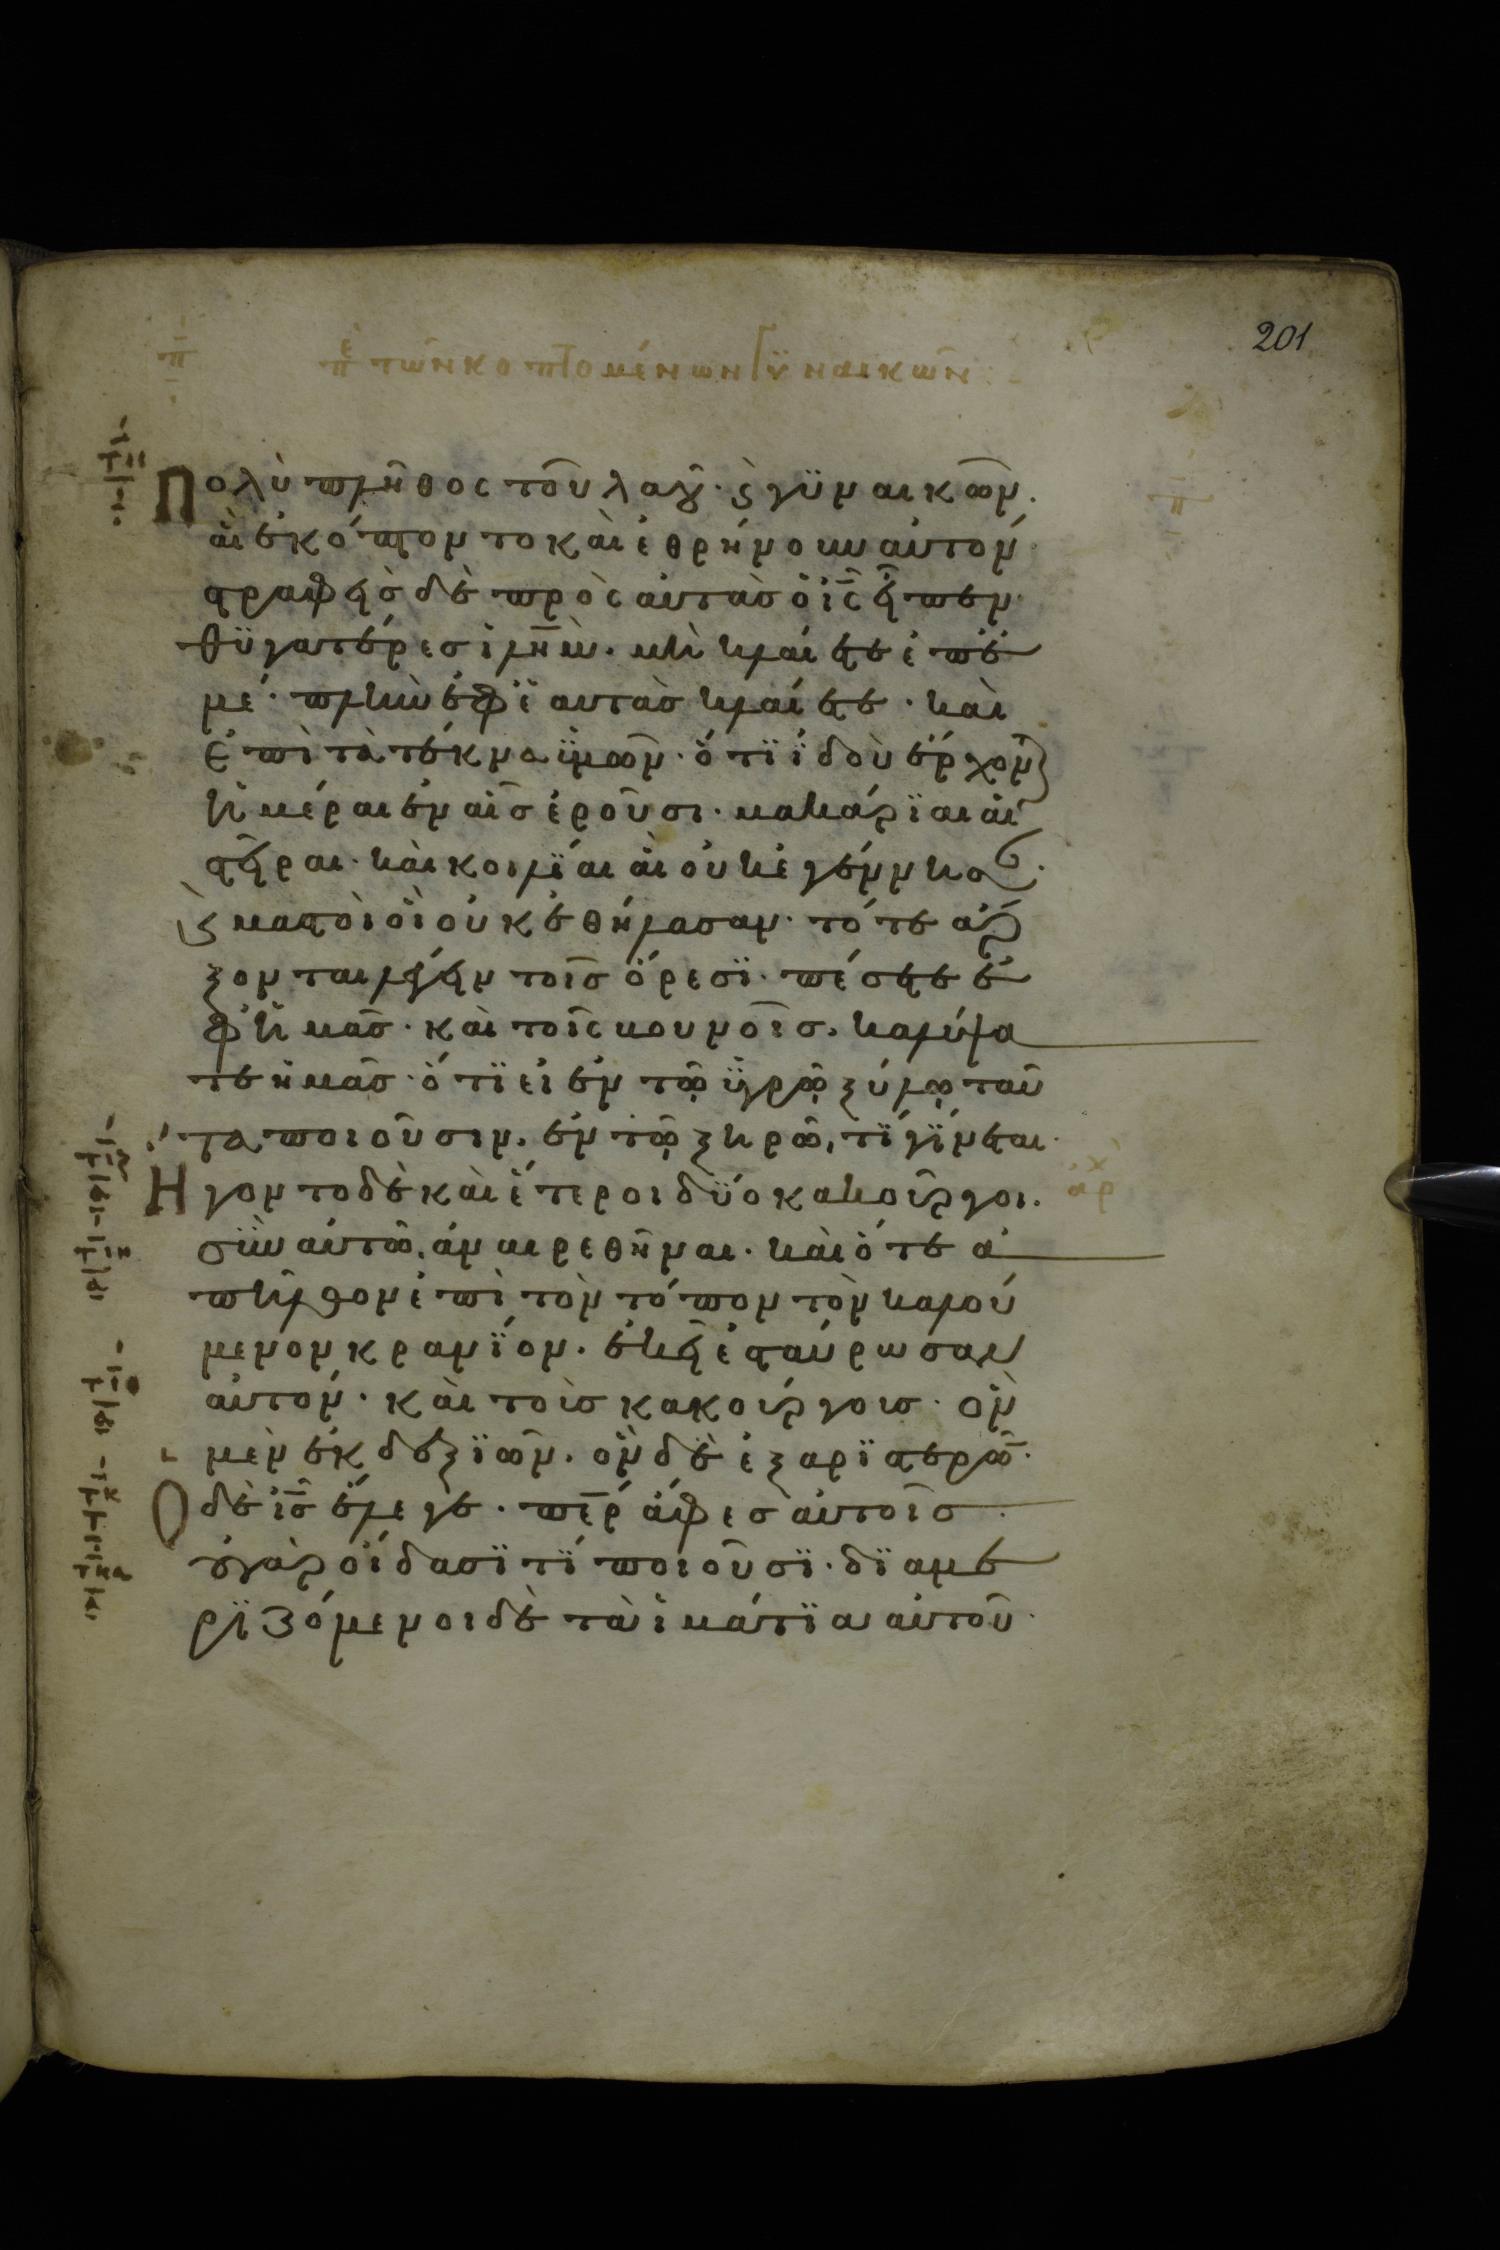 201
π
πε τῶν κοπτομένων γϋναικῶν
Πολὺ πλῆθος τοῦ λαοῦ· ϗ γϋναικῶν·
αἳ ἐκόπτοντο καὶ ἐθρήνουν αὐτόν·
στραφεὶς δὲ πρὸς αὐτὰς ὁ ις εἶπεν·
θϋγατέρες ιλημ· μὴ κλαίετε ἐπ' ἐ
μέ· πλὴν ἐφ' ἑαυτὰς κλαίετε· καὶ
ἐπὶ τὰ τέκνα ϋμῶν· ὅτϊ ϊδοὺ ἔρχοντ
ἡμέραι ἐν αἷς ἐροῦσι· μακάρϊαι αἱ
στεῖραι· καὶ κοιλΐαι αἳ οὐκ ἐγέννησ
ϗ μαστοὶ οἳ οὐκ ἐθήλασαν· τότε ἄρ
ξονται λέγειν τοῖς ὄρεσϊ· πέσετε ἐ
φ' ἡμᾶς· καὶ τοῖς βουνοῖς· καλύψα
τε ἡμᾶς· ὅτϊ εἰ ἐν τῷ ϋγρῷ ξύλῳ ταῦ
τα ποιοῦσιν· ἐν τῷ ξηρῷ, τΐ γΐνεται·
Ηγοντο δὲ καὶ ἕτεροι δϋο κακοῦργοι·
σϋν αὐτῷ, ἀναιρεθῆναι· καὶ ὅτε ἀ
πῆλθον ἐπὶ τὸν τόπον τὸν καλού
μενον κρανΐον· ἐκεῖ ἐσταύρωσαν
αὐτόν· καὶ τοὺς κακούργους· ὃν
μὲν ἐκ δεξϊῶν· ὃν δὲ ἐξ αρϊστερῶ·
Ο δὲ ις ἔλεγε· περ ἄφες αὐτοῖς·
οὐ γὰρ οἴδασϊ τΐ ποιοῦσϊ· δϊαμε
ρϊζόμενοι δὲ τὰ ἱμάτϊα αὐτοῦ·
ἀρχ